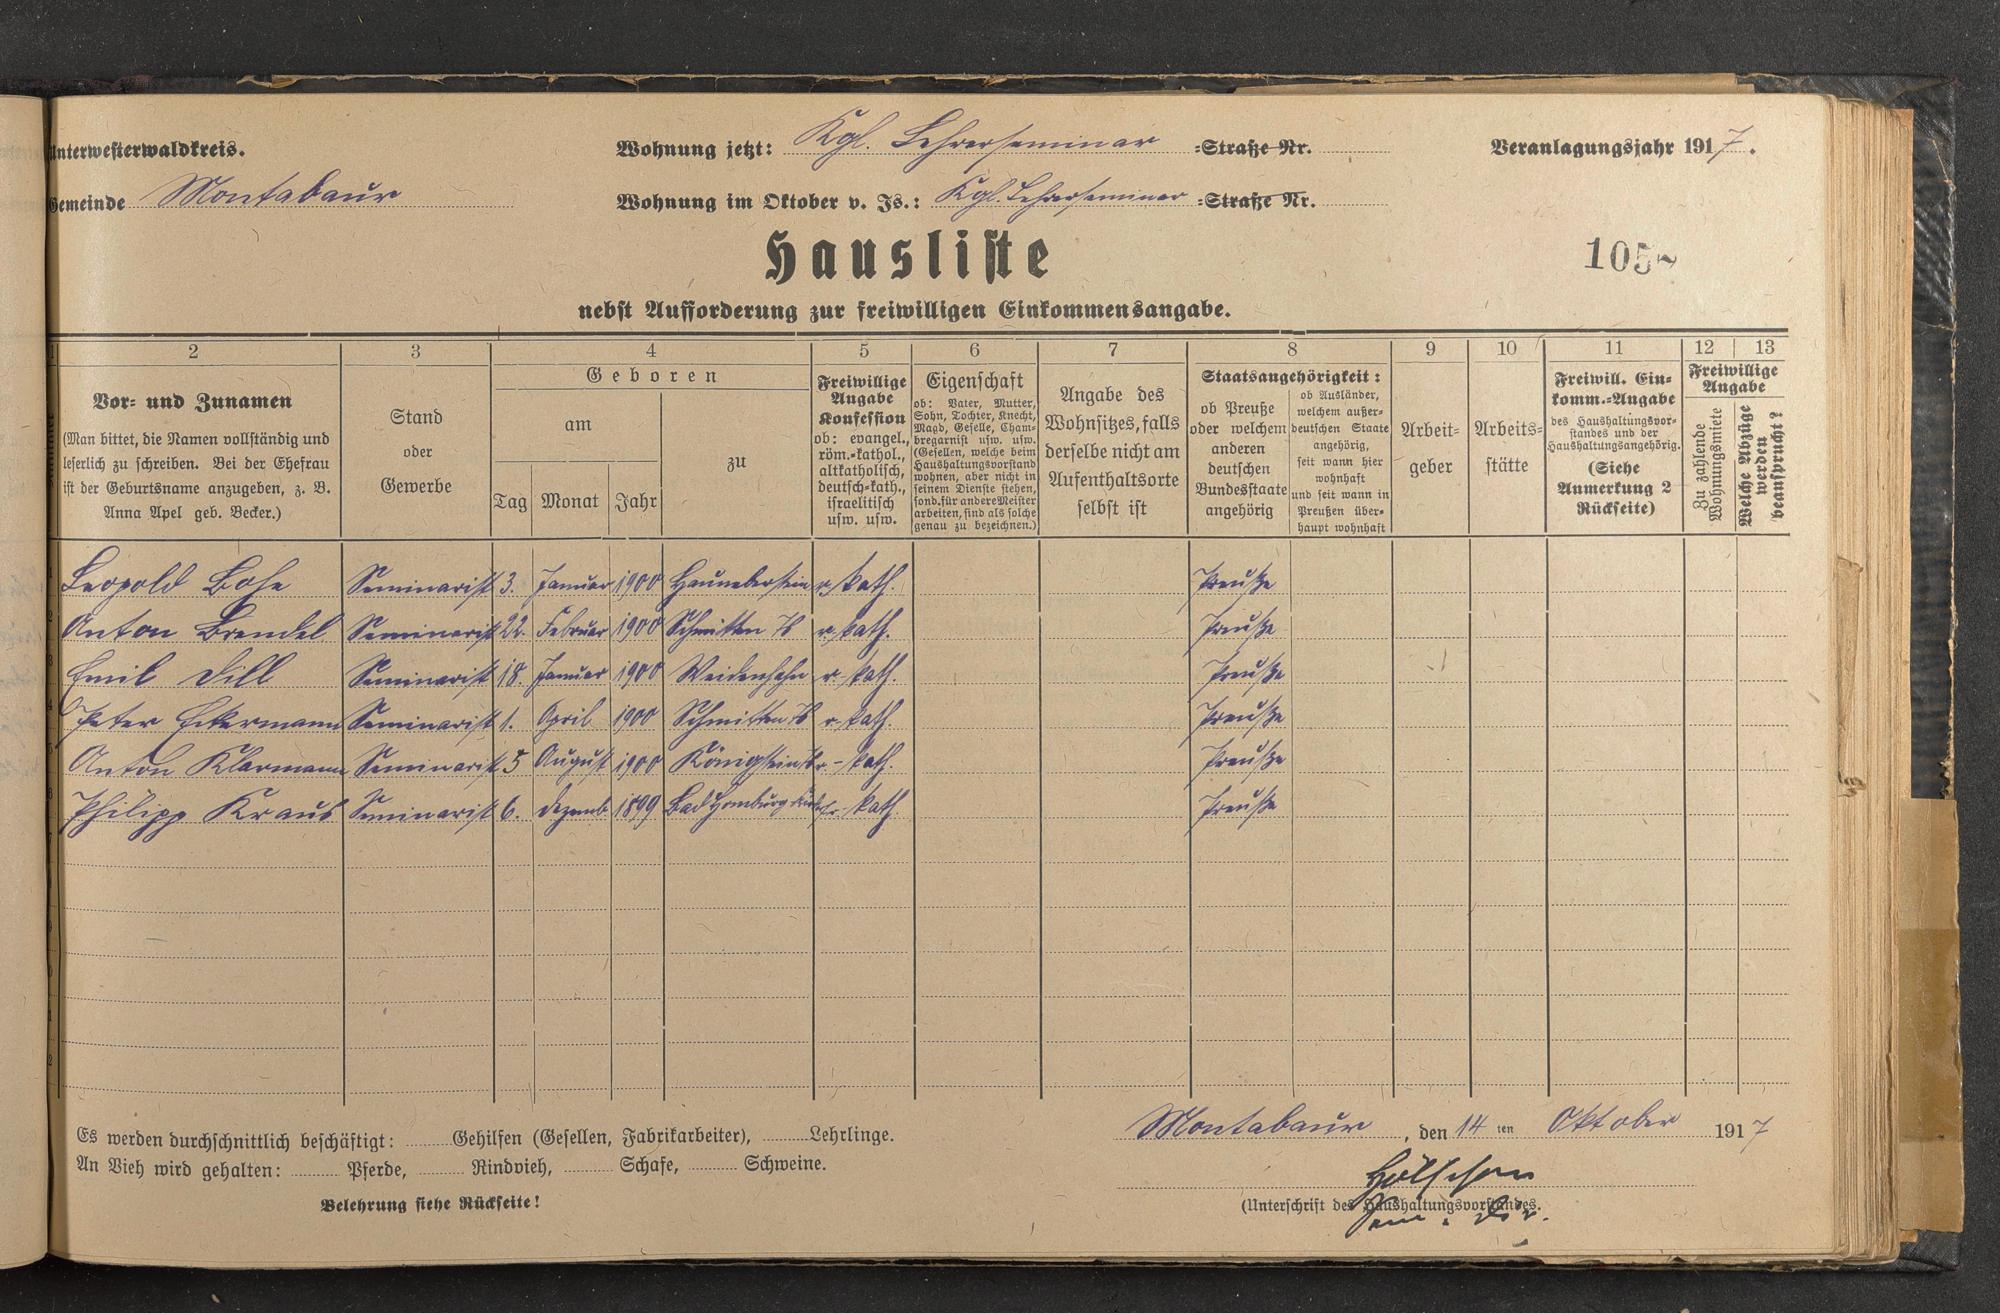 Unterwesterwaldkreis.
Wohnung jetzt: Kgl. Lehrerseminar =Straße Nr.
Veranlagungsjahr 1917.
Gemeinde Montabaur
Wohnung im Oktober v. Js.: Kgl. Lehrerseminar =Straße Nr.
Hausliste
105
nebst Aufforderung zur freiwilligen Einkommensangabe.
2 3 4 5 6 7 8 9 10 11 12 13
Vor- und Zunamen
(Man bittet, die Namen vollständig und
leserlich zu schreiben. Bei der Ehefrau
ist der Geburtsname anzugeben, z. B.
Anna Apel geb. Becker.)
Stand
oder
Gewerbe
Geboren
am
Tag Monat Jahr
zu
Freiwillige
Angabe
Konfession
ob: evangel.,
röm.-kathol.,
altkatholisch,
deutsch-kath.,
israelitisch
usw. usw.
Eigenschaft
ob: Vater, Mutter,
Sohn, Tochter, Knecht,
Magd, Geselle, Cham-
bregarnist usw. usw.
(Gesellen, welche beim
Haushaltungsvorstand
wohnen, aber nicht in
seinem Dienste stehen,
sond. für andere Meister
arbeiten, sind als solche
genau zu bezeichnen.)
Angabe des
Wohnsitzes, falls
derselbe nicht am
Aufenthaltsorte
selbst ist
Staatsangehörigkeit:
ob Preuße
oder welchem
anderen
deutschen
Bundesstaate
angehörig
ob Ausländer,
welchem außer-
deutschen Staate
angehörig,
seit wann hier
wohnhaft
und seit wann in
Preußen über-
haupt wohnhaft
Arbeit-
geber
Arbeits-
stätte
Freiwill. Ein-
komm.-Angabe
des Haushaltungsvor-
standes und der
Haushaltungsangehörig.
(Siehe
Anmerkung 2
Rückseite)
Freiwillige
Angabe
Zu zahlende
Wohnungsmiete
Welche Abzüge
werden
beansprucht?
Leopold Seminarist 3. Januar 1900 r. kath. Preuße
Anton Brendel Seminarist 22. Februar 1900 Schmitten Ts r. kath. Preuße
Emil Dill Seminarist 18. Januar 1900 Weidenhahn r. kath. Preuße
Peter Eckermann Seminarist 1. April 1900 Schmitten Ts r. kath. Preuße
Anton Klarmann Seminarist 5 August 1900 Königstein Ts r.-kath. Preuße
Philipp Kraus Seminarist 6. Dezemb. 1899 Bad Homburg r.-kath. Preuße
Es werden durchschnittlich beschäftigt: Gehilfen (Gesellen, Fabrikarbeiter), Lehrlinge.
An Vieh wird gehalten: Pferde, Rindvieh, Schafe, Schweine.
Belehrung siehe Rückseite!
Montabaur, den 14 ten Oktober 1917
(Unterschrift des Haushaltungsvorstandes.